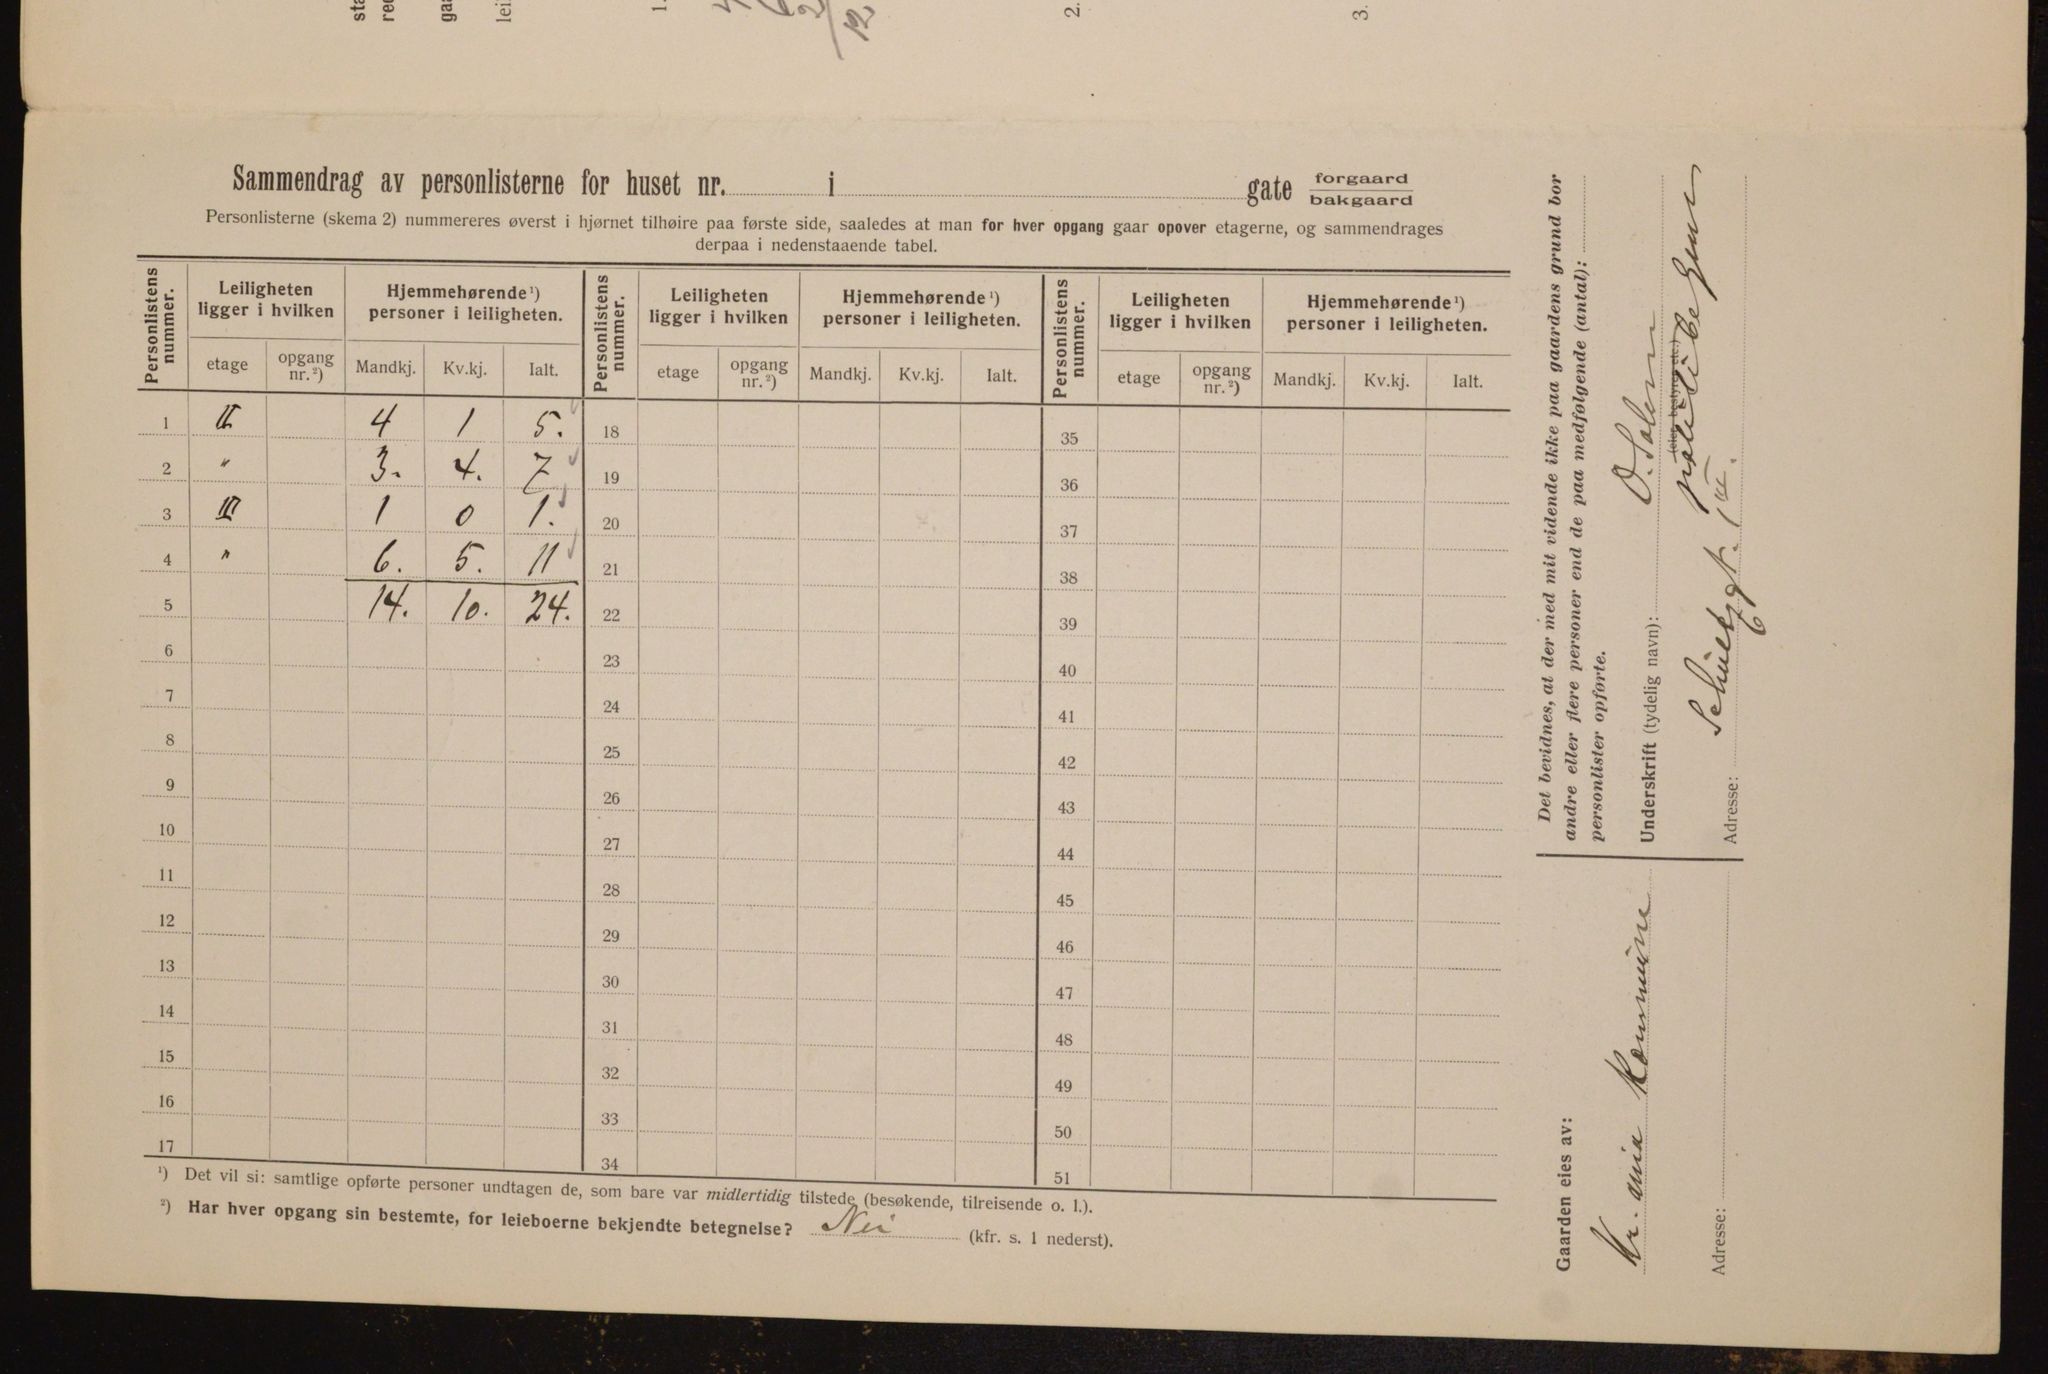 sta
red
ga
lei
1.
2.
3.
Sammendrag av personlisterne for huset nr. i gate forgaard
bakgaard
Personlisterne (skema 2) nummereres øverst i hjørnet tilhøire paa første side, saaledes at man for hver opgang gaar opover etagerne, og sammendrages
derpaa i nedenstaaende tabel.
Personlistens nummer. Leiligheten ligger i hvilken Hjemmehørende ¹) personer i leiligheten. Personlistens nummer. Leiligheten ligger i hvilken Hjemmehørende ¹) personer i leiligheten. Personlistens nummer. Leiligheten ligger i hvilken Hjemmehørende ¹) personer i leiligheten.
etage opgang nr.²) Mandkj. Kv.kj. Ialt. etage opgang nr.²) Mandkj. Kv.kj. Ialt. etage opgang nr.²) Mandkj. Kv.kj. Ialt.
1 II 4 1 5. 18 35
2 " 3. 4. 7 19 36
3 III 1 0 1. 20 37
4 " 6. 5. 11 21 38
5 14. 10. 24. 22 39
6 23 40
7 24 41
8 25 42
9 26 43
10 27 44
11 28 45
12 29 46
13 30 47
14 31 48
15 32 49
16 33 50
17 34 51
¹) Det vil si: samtlige opførte personer undtagen de, som bare var midlertidig tilstede (besøkende, tilreisende o. l.).
²) Har hver opgang sin bestemte, for leieboerne bekjendte betegnelse? Nei (kfr. s. 1 nederst).
Det bevidnes, at der med mit vidende ikke paa gaardens grund bor
andre eller flere personer end de paa medfølgende (antal):
personlister opførte.
Underskrift (tydelig navn): O. Solem
(eier, bestyrer etc.)
politibetjent
Adresse:
Gaarden eies av:
Kr.ania Kommune
Adresse: